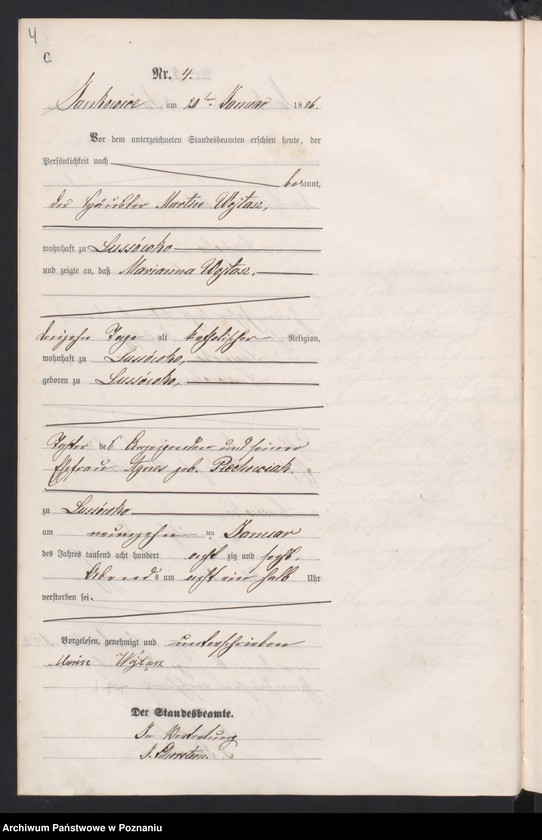 4
C.
Nr. 4.
Jankowice am 20ten Januar 1886.
Vor dem unterzeichneten Standesbeamten erschien heute, der
Persönlichkeit nach
bekannt,
der Häusler Martin Wojtasz,
wohnhaft zu Lussówko
und zeigte an, daß Marianna Wojtasz,
dreizehn Tage alt katholischer Religion,
wohnhaft zu Lussówko,
geboren zu Lussówko,
Tochter des Anzeigenden und seiner
Ehefrau Agnes geb. Piechowiak
zu Lussówko
am neunzehnten Januar
des Jahres tausend acht hundert acht zig und sechs
Abends um acht ein halb Uhr
verstorben sei.
Vorgelesen, genehmigt und unterschrieben
Wojtasz
Der Standesbeamte.
In Vertretung
Archiwum Państwowe w Poznaniu